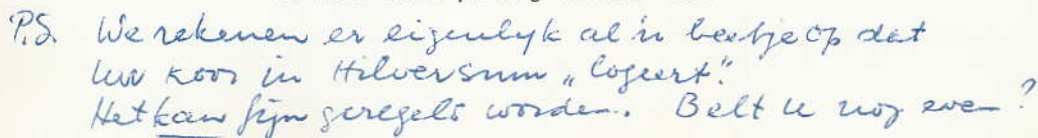 P.S. We rekenen er eigenlyk al 'n beetje op dat
uw koor in Hilversum „logeert".
Het kan fijn geregeld worden. Belt u nog even?